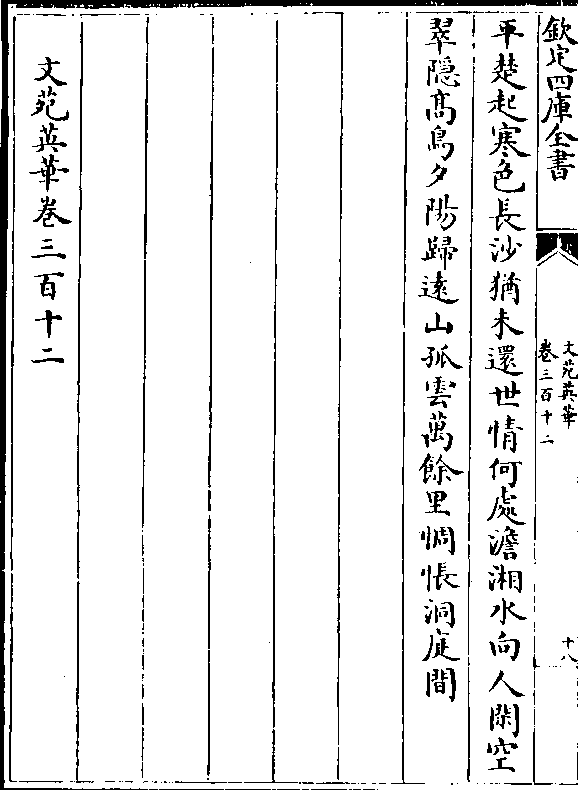 欽定四庫全書
文苑英華
卷三百十二
十八
平楚起寒色長沙猶未還世情何處澹湘水向人閑空
翠隠髙鳥夕陽歸逺山孤雲萬餘里惆悵洞庭間
文苑英華卷三百十二